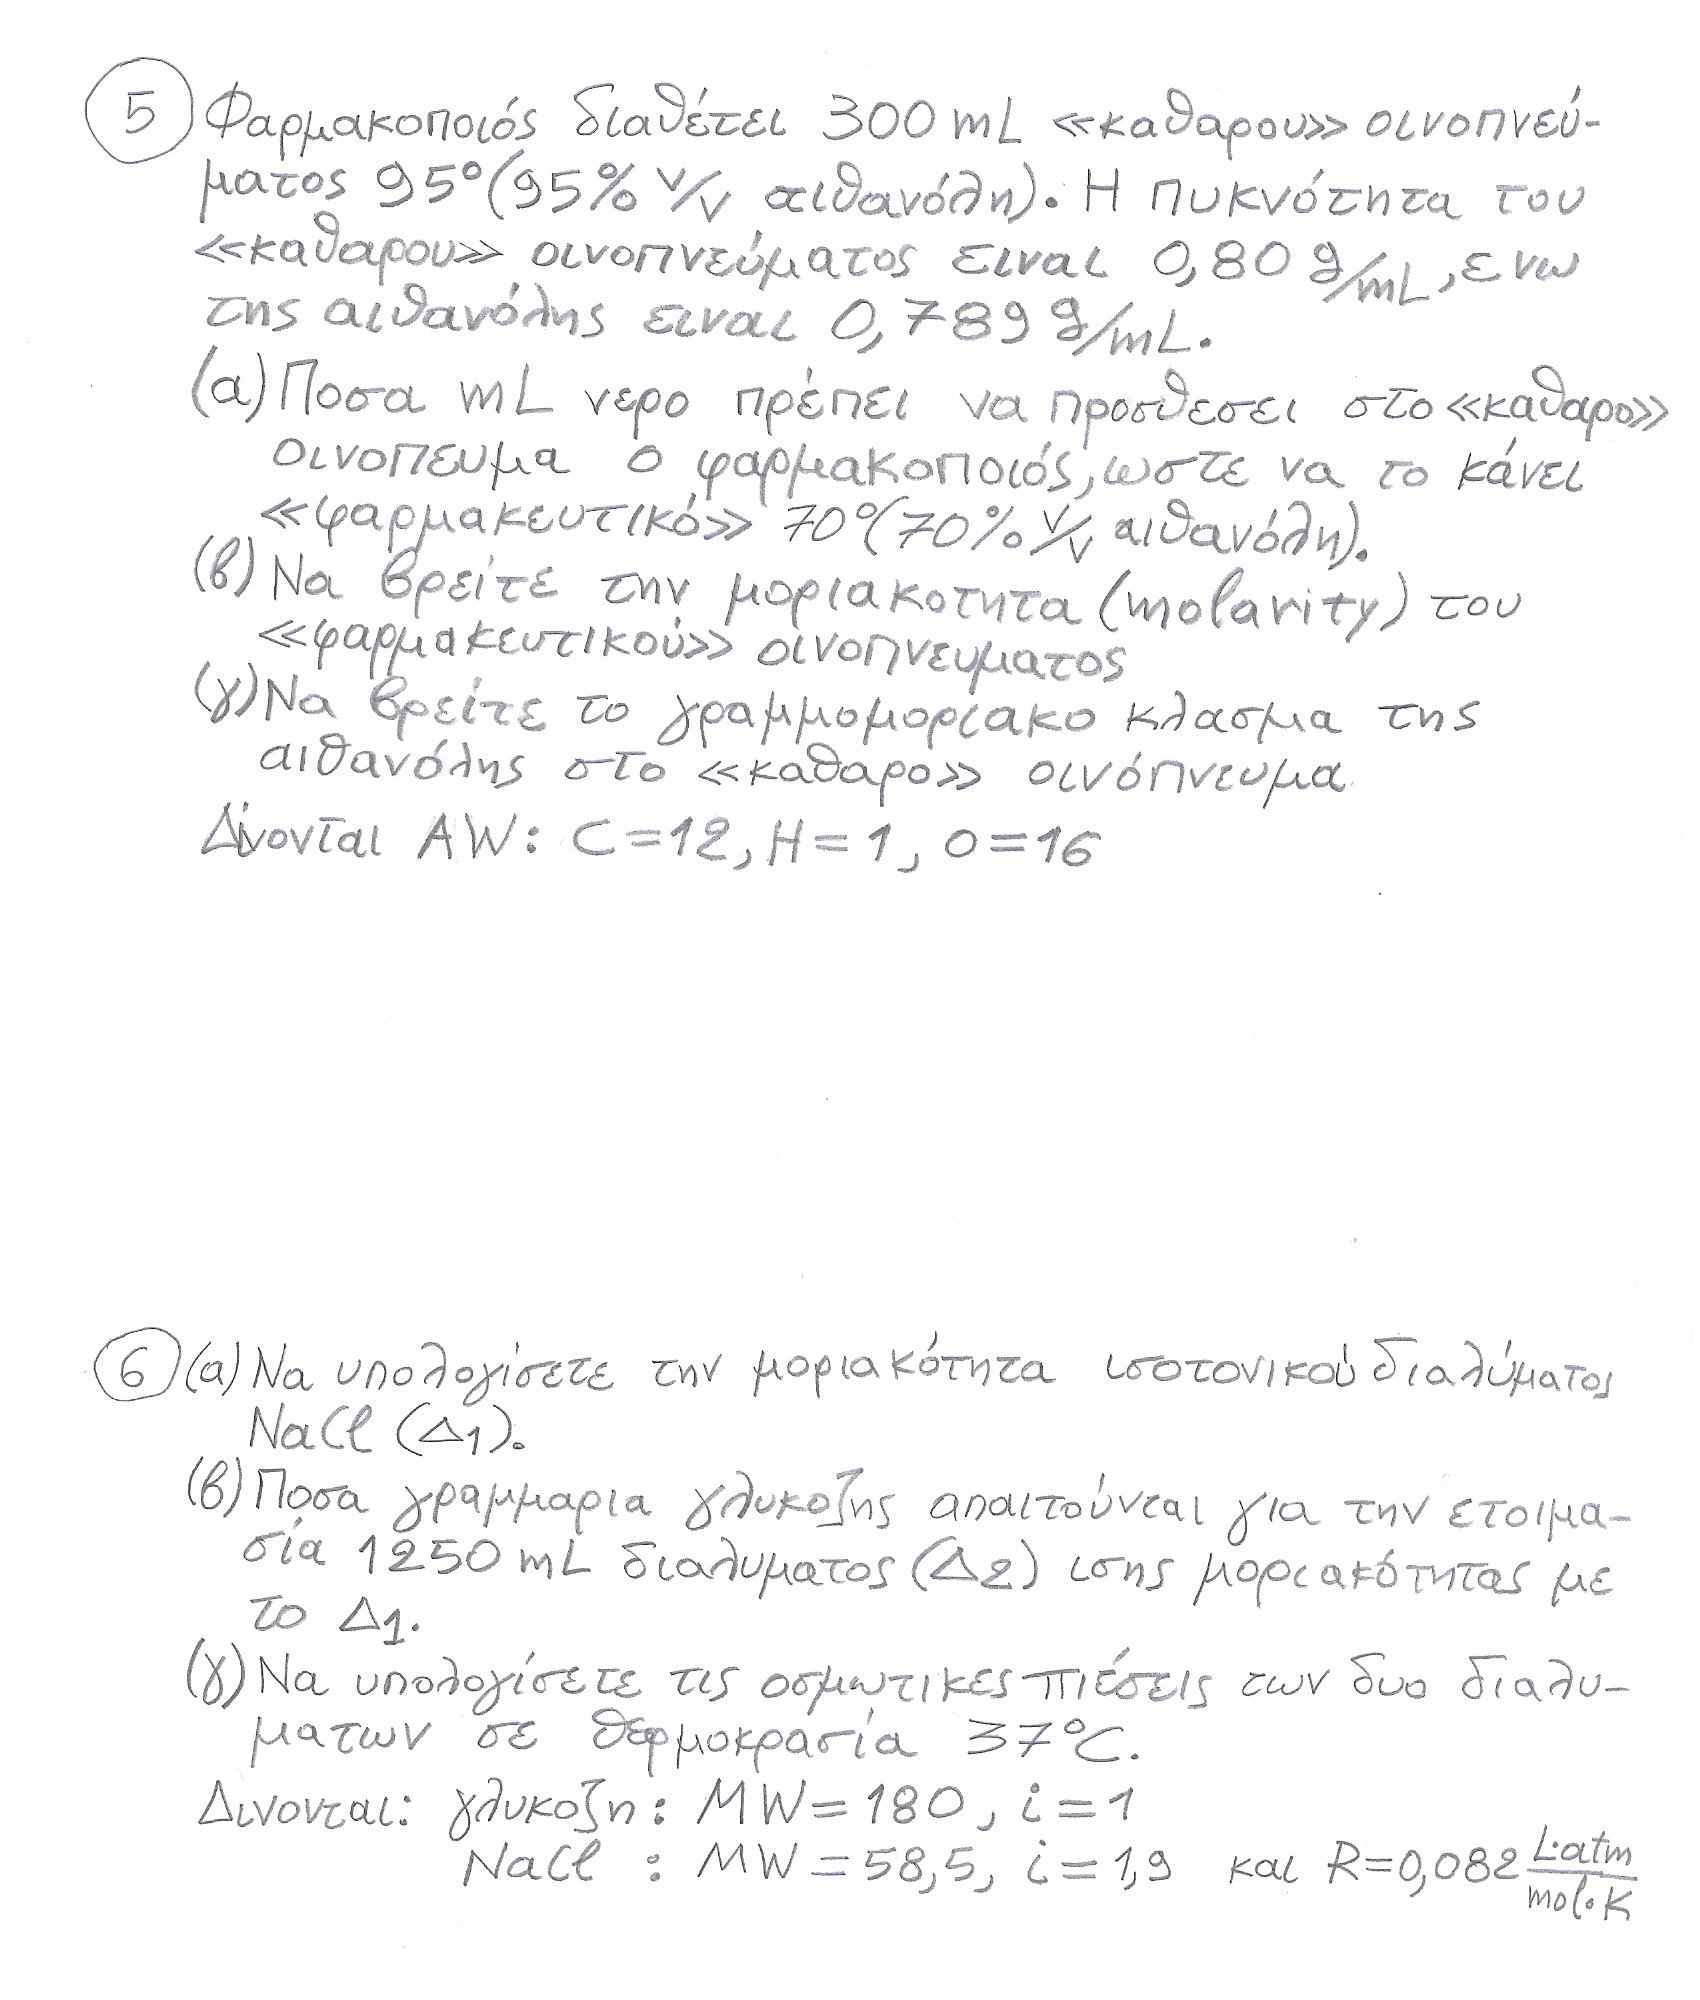 5 Φαρμακοποιός διαθέτει 300 mL «καθαρου» οινοπνεύ-
ματος 95°(95% v/v αιθανόλη). Η πυκνότητα του
«καθαρου» οινοπνεύματος ειναι 0,80 g/mL, ενω
της αιθανόλης ειναι 0,789 g/mL.
(α) Ποσα mL νερο πρέπει να προσθεσει στο «καθαρο»
οινοπευμα ο φαρμακοποιός, ωστε να το κάνει
«φαρμακευτικό» 70°(70% v/v αιθανόλη).
(β) Να βρείτε την μοριακοτητα (molarity) του
«φαρμακευτικού» οινοπνευματος
(γ) Να βρείτε το γραμμομοριακο κλασμα της
αιθανόλης στο «καθαρο» οινόπνευμα
Δίνονται AW: C=12, H=1, O=16
6 (α) Να υπολογίσετε την μοριακότητα ισοτονικού διαλύματος
NaCl (Δ1).
(β) Ποσα γραμμαρια γλυκοζης απαιτούνται για την ετοιμα-
σία 1250 mL διαλυματος (Δ2) ισης μοριακότητας με
το Δ1.
(γ) Να υπολογίσετε τις οσμωτικες πιέσεις των δυο διαλυ-
ματων σε θερμοκρασία 37°C.
Δινονται: γλυκοζη: MW=180, i=1
NaCl : MW=58,5, i=1,9 και R=0,082 L·atm/mol·K